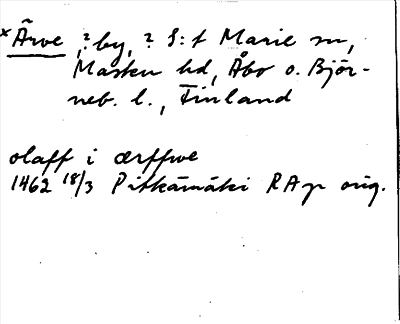 x Ärve, ? by, ? S:t Marie sn,
Masku hd, Åbo o. Björ-
neb. l., Finland
olaff i ærffwe
1462 18/3 Pitkämäki RAp orig.